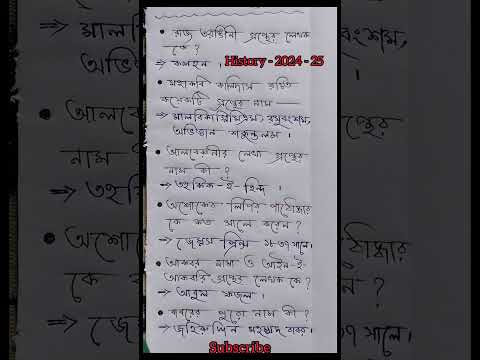 • রাজ তরঙ্গিনী গ্রন্থের লেখক
কে ?
History - 2024 - 25
⇒ কলহন ।
• মহাকবি কালিদাস রচিত
কয়েকটি গ্রন্থের নাম —
⇒ মালবিকাগ্নিমিত্রম, রঘুবংশম,
অভিজ্ঞান শকুন্তলম ।
• আলবেরুনীর লেখা গ্রন্থের
নাম কী ?
⇒ তহকিক - ই - হিন্দ ।
• অশোকের লিপির পাঠোদ্ধার
কে কত সালে করেন ?
⇒ জেমস প্রিন্সেপ ১৮৩৭ সালে।
• আকবর নামা ও আইন - ই -
আকবরি গ্রন্থের লেখক কে ?
⇒ আবুল ফজল ।
• বাবরের পুরো নাম কী ?
⇒ জহিরুদ্দিন মহম্মদ বাবর ।
Subscribe